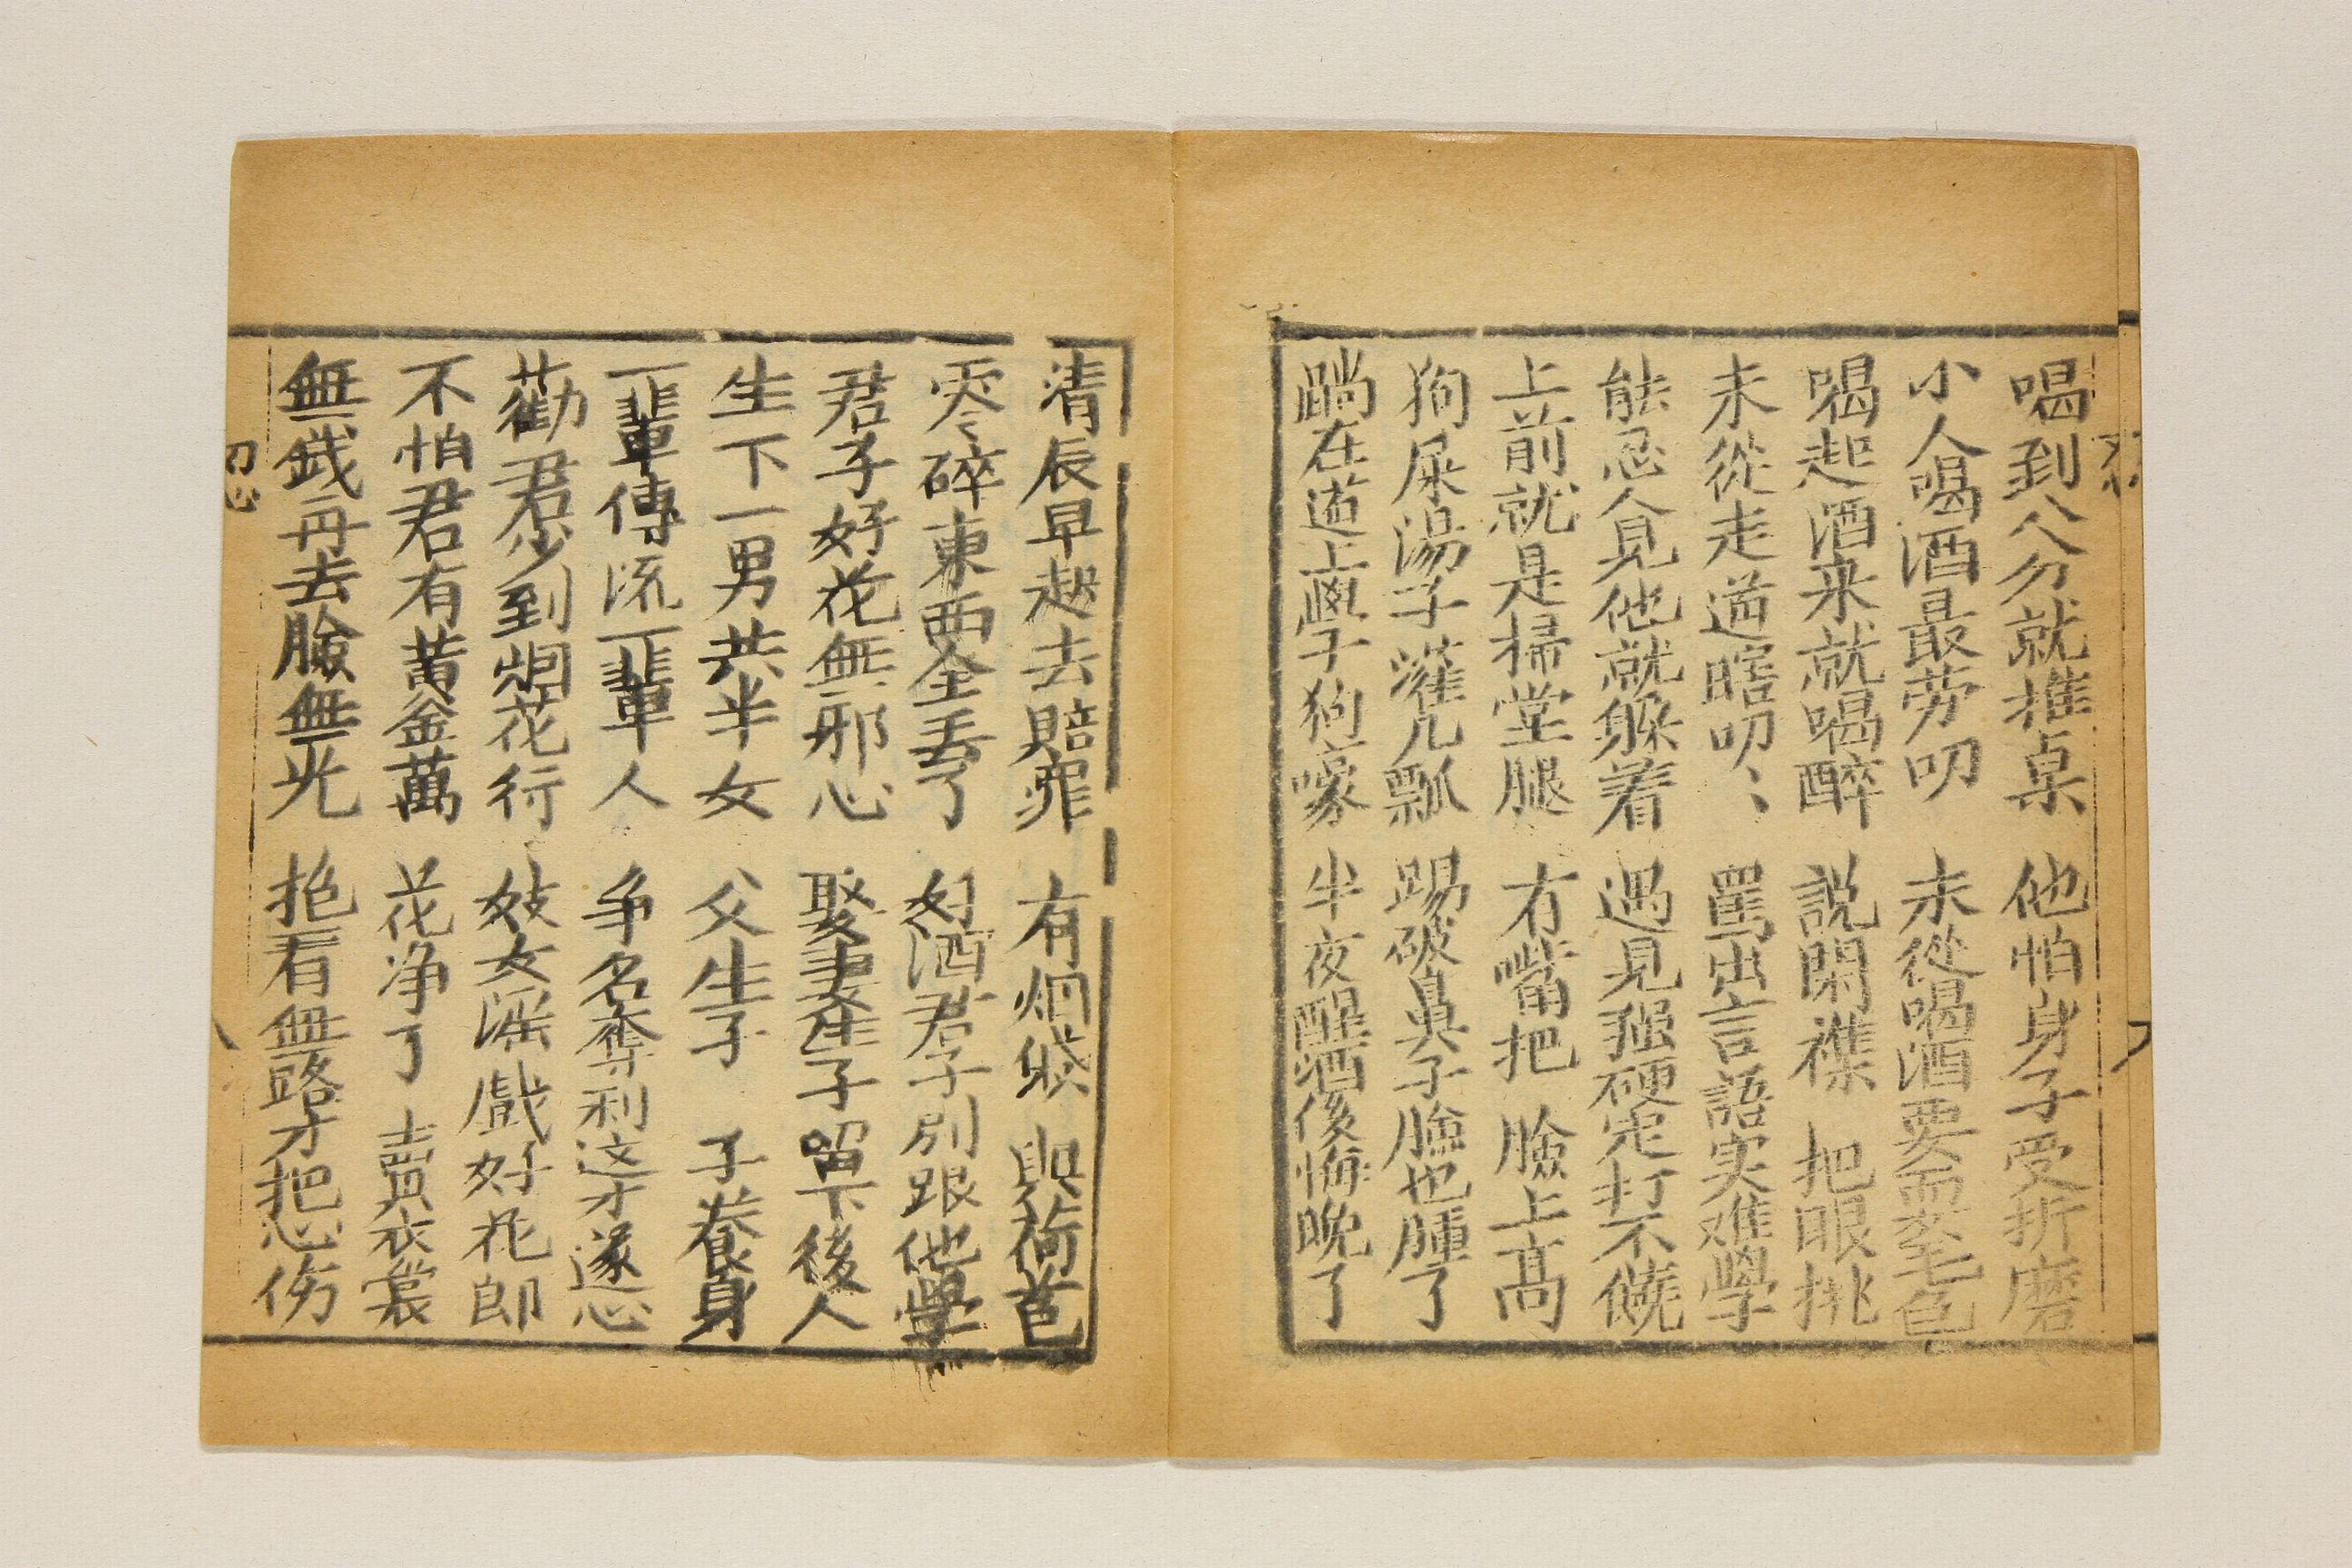 喝到八分就推桌　他怕身子受折磨
小人喝酒最劳叨　未從喝酒要
喝起酒来就喝醉　説閑襍　把眼挑
未從走道瞎叨〻　罵出言語实难學
能忍人見他就躲着　遇見强硬定打不饒
上前就是掃堂腿　冇嘴把　臉上高
狗屎湯子灌几瓢　踢破鼻子臉也腫了
䠀在道上　于狗　半夜醒酒後悔晚了
清辰早起去賠罪　有烟錢　與荷苞
零〻碎東西全丟了　好酒君子別跟他學
君子好花無邪心　娶妻生子留下後人
生下一男共半女　父生子　子養身
一輩傳流一輩人　争名奪利这才遂心
勸君少到烟花行　妓女滛戲好花郎
不怕君有黃金萬　花净了　賣衣裳
無錢再去臉無光　抱看無路才把心伤